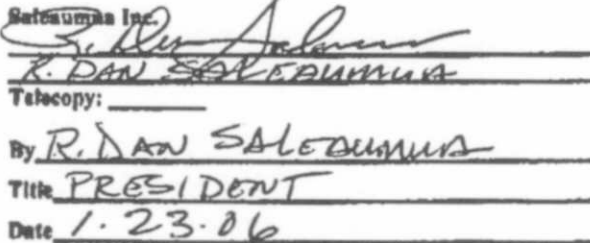 Saleaumua Inc.
R. Dan Saleaumua
R. DAN SALEAUMUA
Telecopy:
By R. DAN SALEAUMUA
Title PRESIDENT
Date 1.23.06